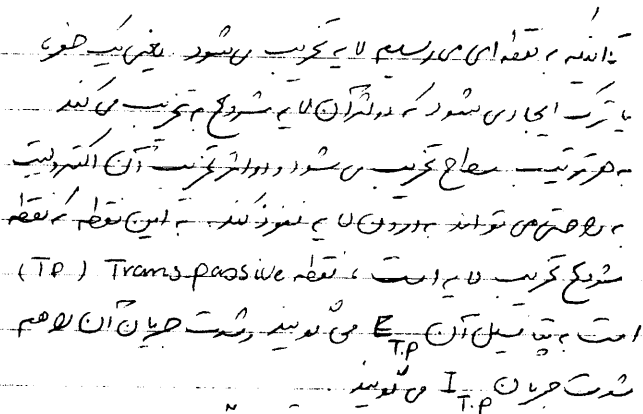 تا اینکه به نقطه‌ای می‌رسیم لایه تخریب می‌شود یعنی یک حفره
یا ترک ایجاد می‌شود که در اثر آن لایه شروع به تخریب می‌کند
به هر ترتیب سطح تخریب می‌شود و در اثر تخریب آن الکترولیت
به راحتی می‌تواند به درون لایه نفوذ کند. به این نقطه که نقطه
شروع تخریب لایه است، نقطه Transpassive (TP)
است به پتانسیل آن E_T.P می‌گویند و شدت جریان آن را هم
شدت جریان I_T.P می‌گویند.